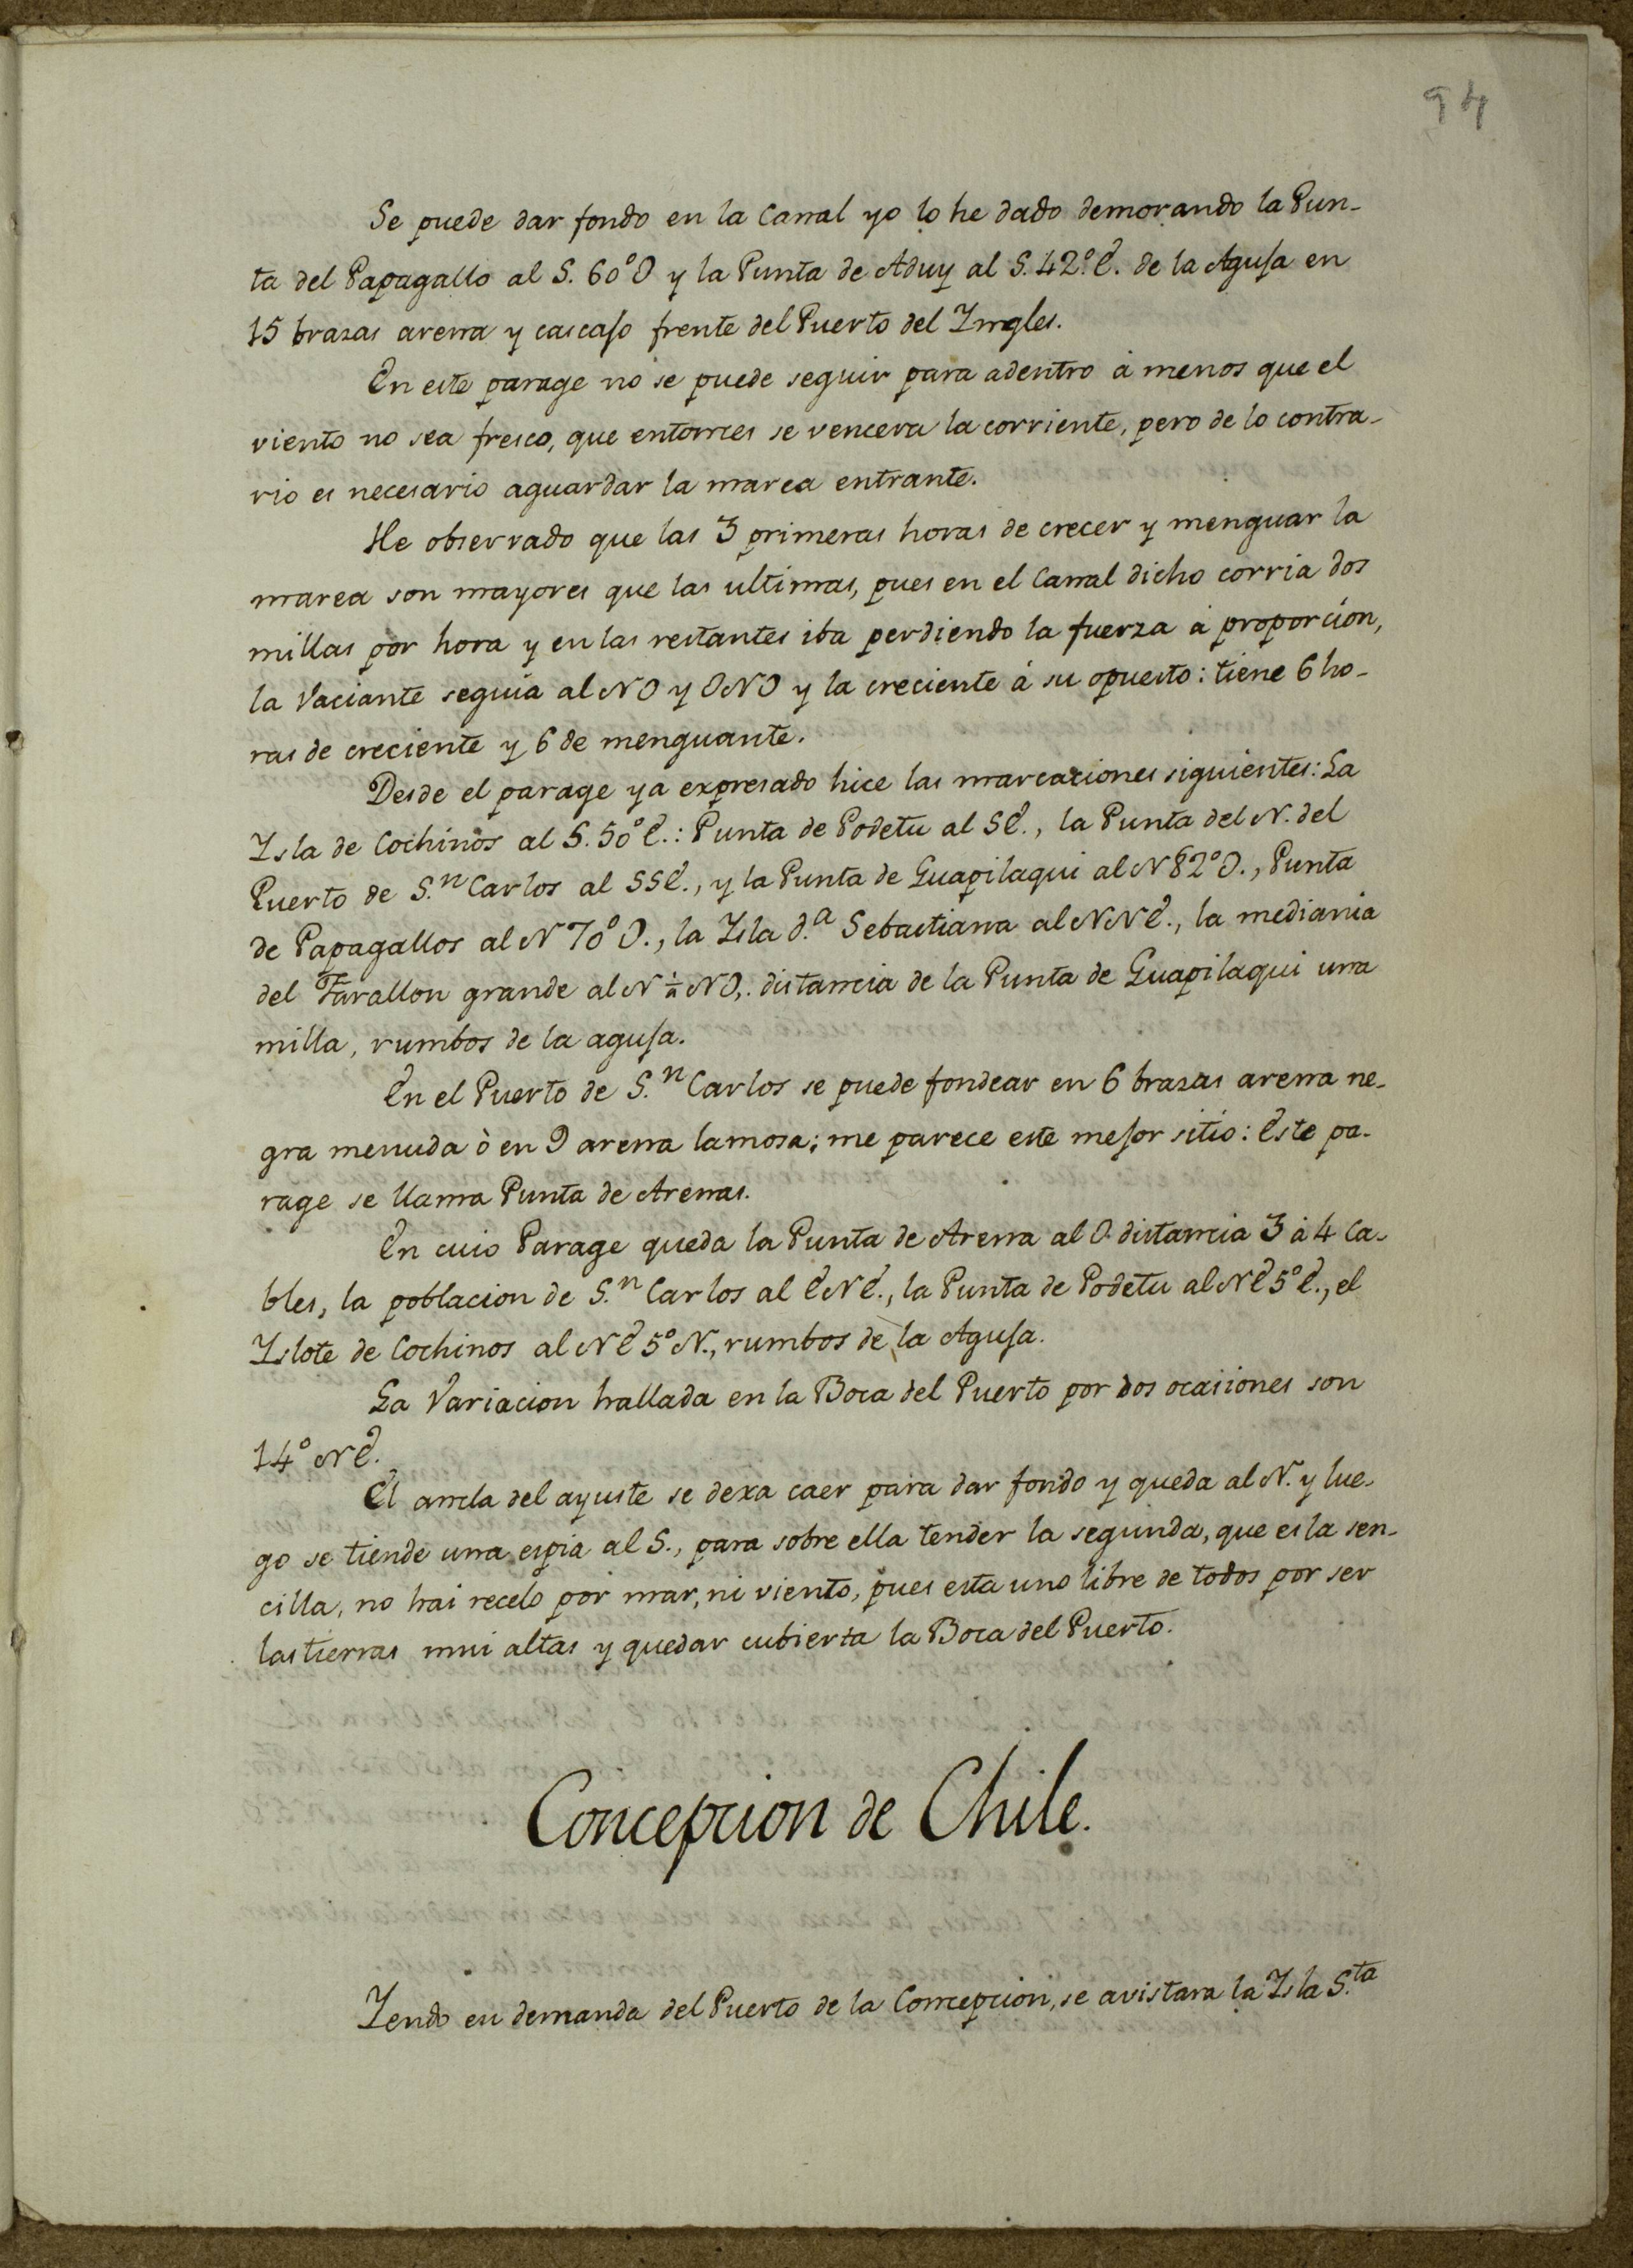 94
Se puede dar fondo en la Canal yo lo he dado demorando la Pun-
ta del Papagallo al S. 60° O y la Punta de Aduy al S. 42° E. de la Aguja en
15 brazas arena y cascajo frente del Puerto del Yngles.
En este parage no se puede seguir para adentro à menos que el
viento no sea fresco, que entonces se vencera la corriente, pero de lo contra-
rio es necesario aguardar la marea entrante.
He observado que las 3 primeras horas de crecer y menguar la
marea son mayores que las ultimas, pues en el Canal dicho corria dos
millas por hora y en las restantes iba perdiendo la fuerza à proporcion,
la Vaciante seguia al NO y ONO y la creciente à su opuesto: tiene 6 ho-
ras de creciente y 6 de menguante.
Desde el parage ya expresado hice las marcaciones siguientes: La
Ysla de Cochinos al S. 50° E.: Punta de Podetu al SE., la Punta del N. del
Puerto de S.n Carlos al SSE., y la Punta de Guapilaqui al N 82° O., Punta
de Papagallos al N 70° O., la Ysla d.a Sebastiana al NNE., la mediania
del Farallon grande al N ¼ NO,. distancia de la Punta de Guapilaqui una
milla, rumbos de la aguja.
En el Puerto de S.n Carlos se puede fondear en 6 brazas arena ne-
gra menuda ò en 9 arena lamosa; me parece este mejor sitio: Este pa-
rage se llama Punta de Arenas.
En cuio Parage queda la Punta de Arena al O distancia 3 à 4 Ca-
bles, la poblacion de S.n Carlos al ENE., la Punta de Podetu al NE 5° E., el
Yslote de Cochinos al NE 5° N., rumbos de la Aguja.
La Variacion hallada en la Boca del Puerto por dos ocasiones son
14° NE.
El ancla del ayuste se dexa caer para dar fondo y queda al N. y lue-
go se tiende una espia al S., para sobre ella tender la segunda, que es la sen-
cilla, no hai recelo por mar, ni viento, pues esta uno libre de todos por ser
las tierras mui altas y quedar cubierta la Boca del Puerto.
Concepcion de Chile.
Yendo en demanda del Puerto de la Concepcion, se avistara la Ysla S.ta